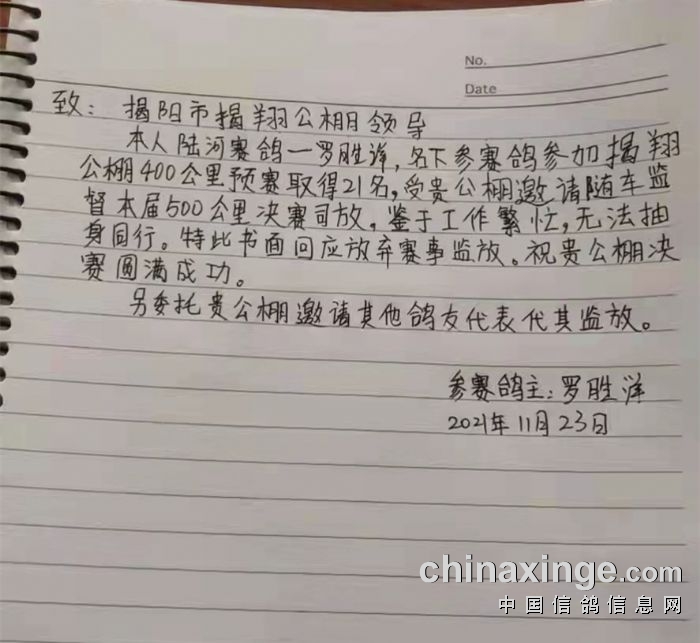 No.
Date
致：揭阳市揭翔公棚领导
本人陆河赛鸽—罗胜洋，名下参赛鸽参加揭翔
公棚400公里预赛取得21名，受贵公棚邀请随车监
督本届500公里决赛司放，鉴于工作繁忙，无法抽
身同行。特此书面回应放弃赛事监放。祝贵公棚决
赛圆满成功。
另委托贵公棚邀请其他鸽友代表代其监放。
参赛鸽主：罗胜洋
2021年11月23日
chinaxinge.com
中国信鸽信息网